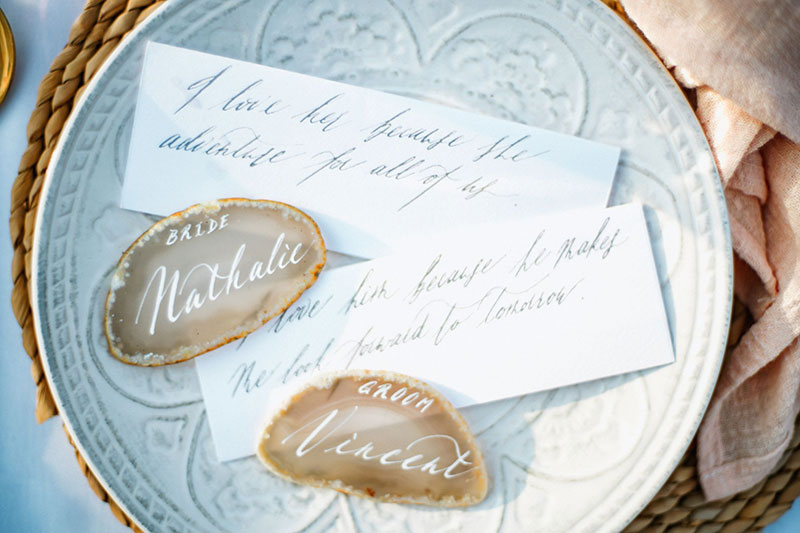 I love her because she
adventure for all of us.
BRIDE
Nathalie
I love him because he makes
me look forward to tomorrow.
GROOM
Vincent